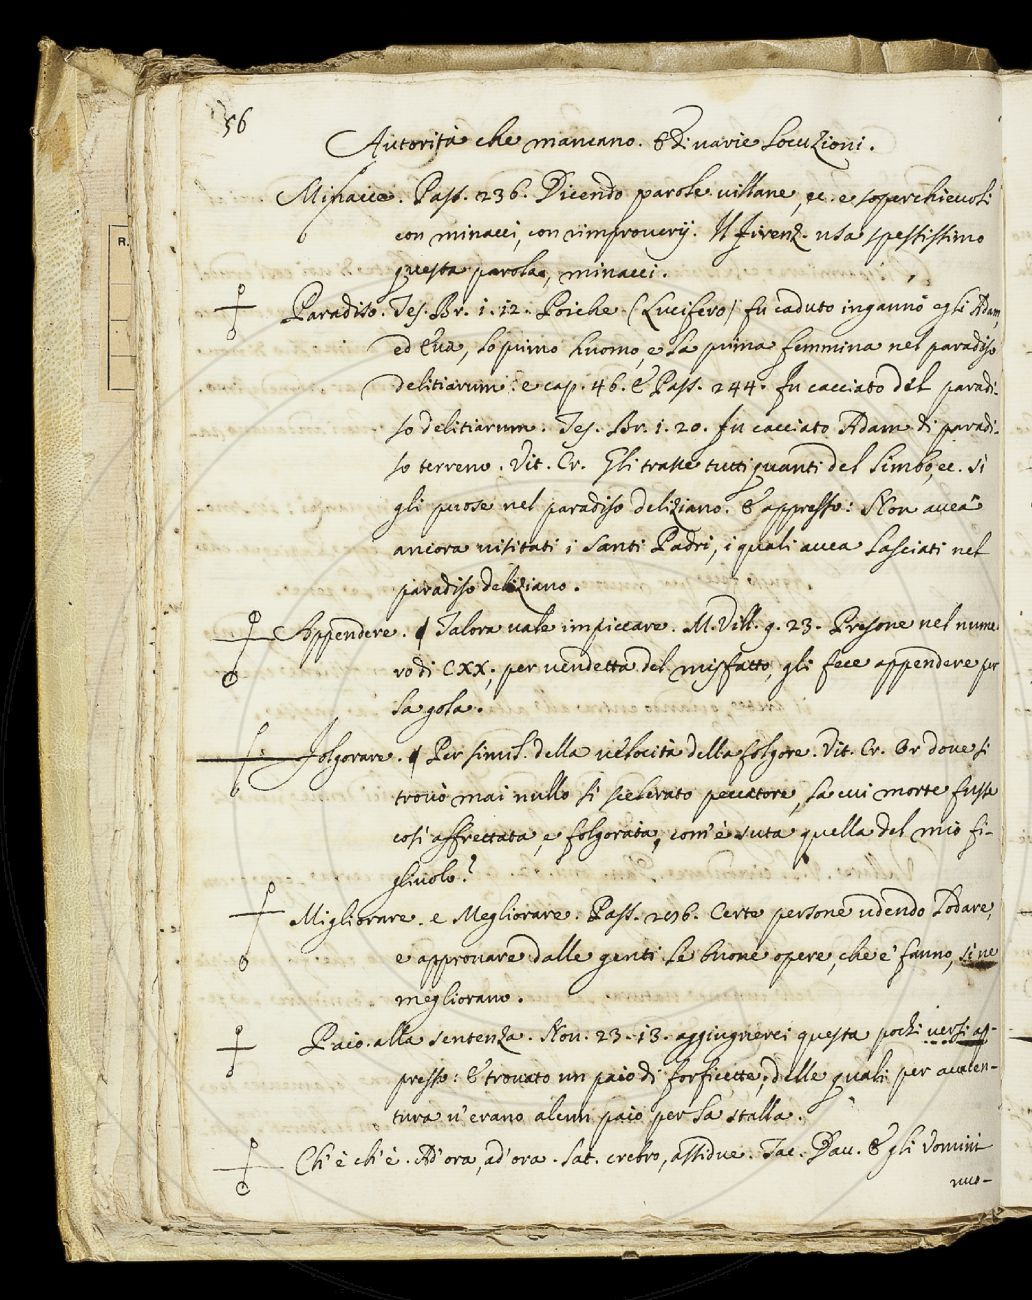 56
Autorità che mancano. E di varie Locuzioni.
Minacce. Pass. 236. Dicendo parole villane, ec. e soperchievoli
con minacci, con rimproverj. Il Firenz. usa spessissimo
questa parola, minacci.
Paradiso. Tes. Br. 1. 12. Poiche (Lucifero) fu caduto ingannò egli Adam,
ed Eva, lo primo huomo, e la prima femmina nel paradiso
delitiarum: e cap. 46. E Pass. 244. Fu cacciato del paradi-
so delitiarum. Tes. Br. 1. 20. Fu cacciato Adam di paradi-
so terreno. Vit. Cr. Gli trasse tutti quanti del Limbo, ec. sì
gli puose nel paradiso deliziano. E appresso: Non avea
ancora visitati i Santi Padri, i quali avea lasciati nel
paradiso deliziano.
Appendere. Talora vale impiccare. M. Vill. 9. 23. Presone nel nume-
ro di CXX, per vendetta del misfatto, gli fece appendere per
la gola.
Folgorare. Per simil. della velocità della folgore. Vit. Cr. Or dove si
trovò mai nullo sì scelerato peccatore, la cui morte fusse
così affrettata, e folgorata, com'è suta quella del mio fi-
gliuolo?
Migliorare. e Megliorare. Pass. 296. Certe persone udendo lodare,
e approvare dalle genti le buone opere, che e' fanno, si ne
megliorano.
Paio. alla sentenza. Nov. 23. 13. aggiugnerei questa pochi versi ap-
presso: E trovato un paio di forficette, delle quali per avven-
tura v'erano alcun paio per la stalla.
Ch'è ch'è. Ad'ora, ad'ora. Lat. crebro, assidue. Tac. Dav. E gli Uomini
nuo-
R.